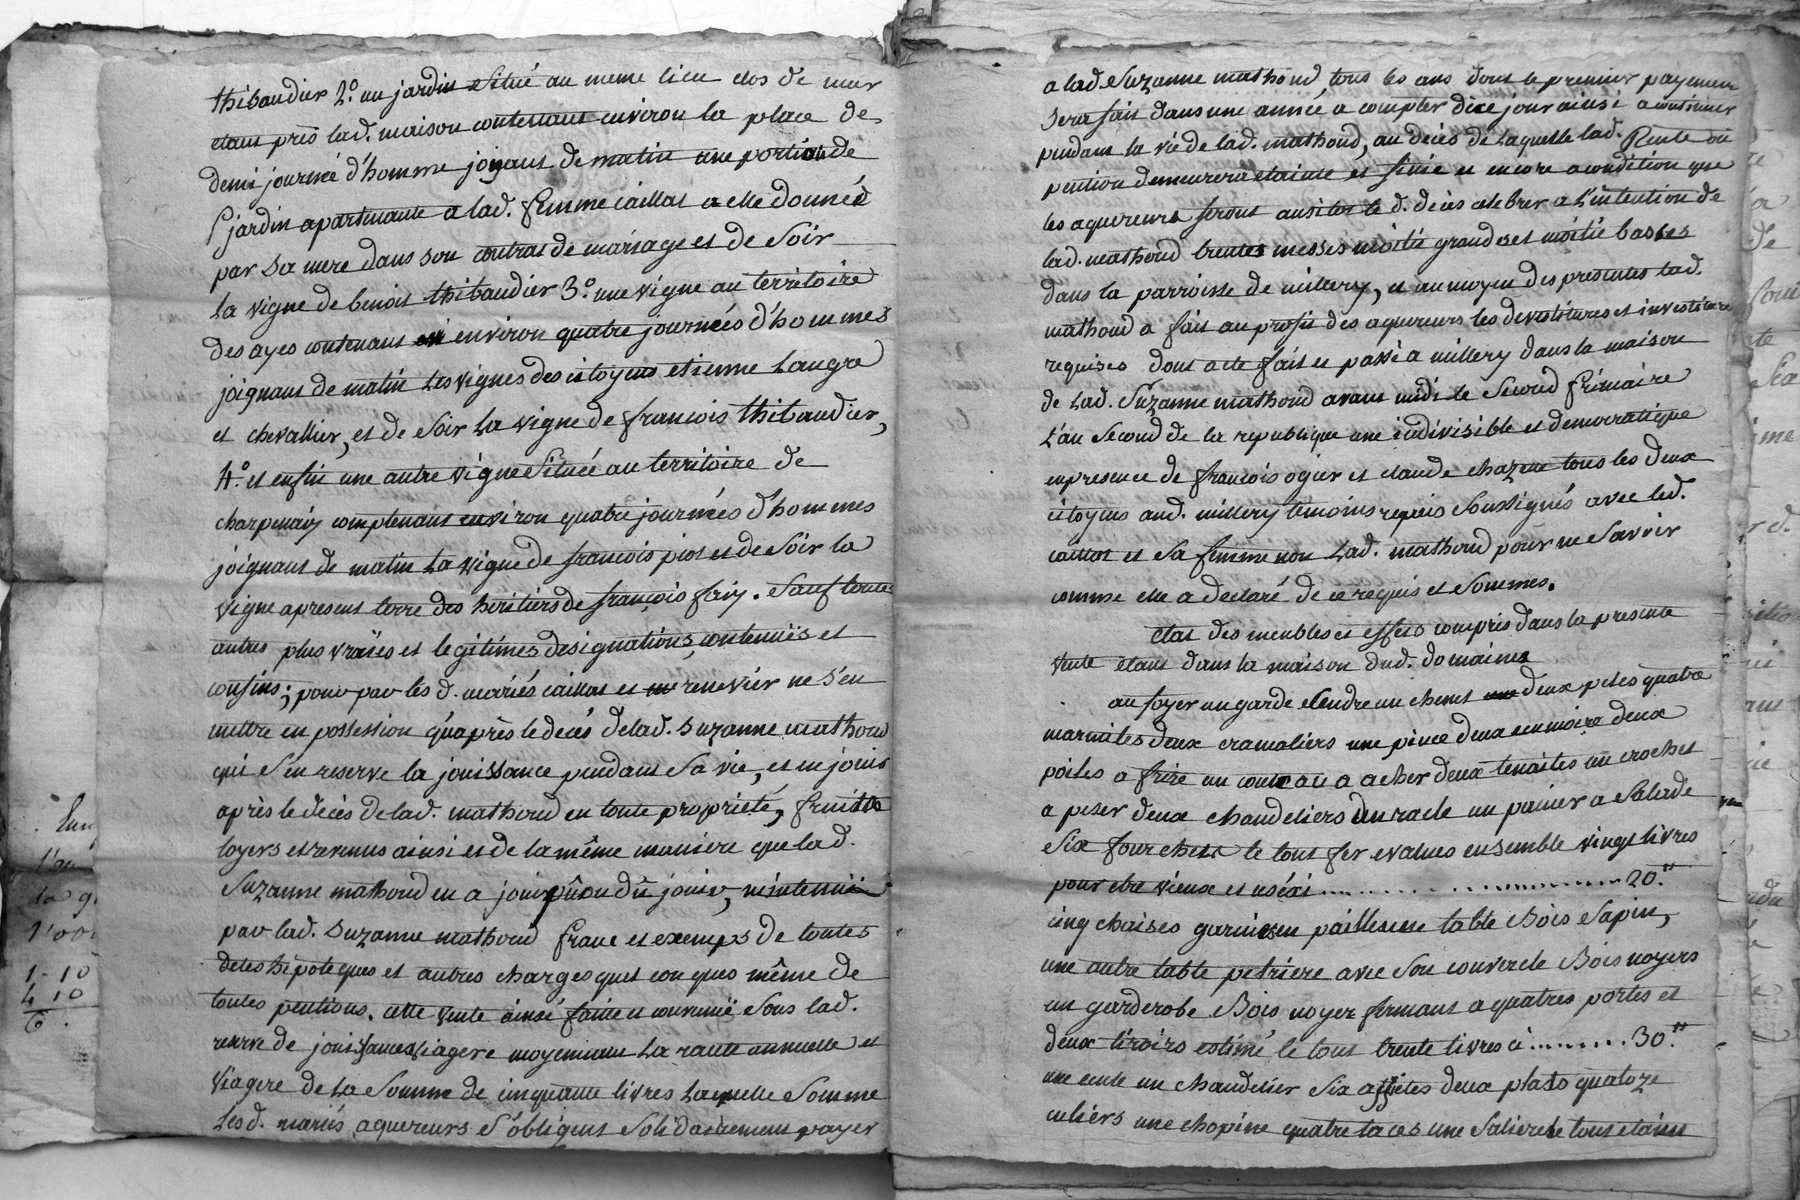 thibaudier 2.° un jardin situé au meme lieu clos de mur
etant près lad. maison contenant environ la place de
demi journée d'homme joignant de matin une portion de
jardin apartenante a lad. femme caillot a elle donnée
par sa mere dans son contrat de mariage et de soir
la vigne de benoit thibaudier 3.° une vigne au territoire
des ayes contenant environ quatre journées d'hommes
joignant de matin les vignes des citoyens etienne Laugre
et chevallier, et de soir la vigne de francois thibaudier,
4.° et enfin une autre vigne située au territoire de
charpenay complenant environ quatre journées d'hommes
joignant de matin la vigne de francois piot et de soir la
vigne apresent terre des heritiers de françois fay. Sauf toutes
autres plus vraïes et legitimes designations, contenuës et
confins; pour par les d. mariés caillot et renevier ne s'en
mettre en possession qu'après le decés de lad. Suzanne mathoud
qui s'en reserve la jouissance pendant sa vie, et en jouir
après le decès de lad. mathoud en toute propriété, fruits
loyers et revenus ainsi et de la même maniere que lad.
Suzanne mathoud en a joui pû ou dû jouir, maintenuë
par lad. Suzanne mathoud franc et exemps de toutes
dettes hipoteques et autres charges quelconques même de
toutes pentions. cette vente ainsi faite et convenuë sous lad.
reserve de jouissance viagere moyennant la rante annuelle et
viagere de la somme de cinquante livres laquelle somme
les d. mariés aquereurs s'obligent solidairement payer
a lad. Suzanne mathoud tous les ans dont le premier payement
sera fait dans une année a compter dice jour ainsi a continuer
pendant la vie de lad. mathoud, au deces de laquelle lad. Rente ou
pention demeurera etainte et finie et encore a condition que
les aquereurs feront ausitot le d. décès celebrer a l'intention de
lad. mathoud trentes messes moitié grandes et moitié basses
dans la parroisse de millery, et au moyen des presentes lad.
mathoud a fait au profit des aquereurs les devestitures et investiture
requises dont acte fait et passé a millery dans la maison
de lad. Suzanne mathoud avant midi le second frimaire
l'an second de la republique une indivisible et democratique
en presence de francois ogier et claude chazene tous les deux
citoyens aud. millery temoins requis soussignés avec led.
caillot et sa femme non lad. mathoud pour ne savoir
comme elle a declaré de ce requis et sommes.
etat des meubles et effets compris dans la presente
vente etant dans la maison dud. domaines
au foyer un garde cendre un chenet deux peles quatre
marmites deux cramaliers une pince deux deux
poiles a frire un couteau a acher deux tenailes un crochet
a peser deux chandeliers un racle un painier a salade
six fourchets le tout fer evalues ensemble vingt livres
pour etre vieux et usés ci .......... 20."
cinq chaises garnies en paille une table Bois sapin,
une autre table petriere avec son couvercle Bois noyers
un garderobe Bois noyer fermant a quatres portes et
deux tiroirs estimé le tout trente livres ci ........ 30."
une ecule un chandelier six assietes deux plats quatoze
culiers une chopine quatre tasses une saliere le tout etaim